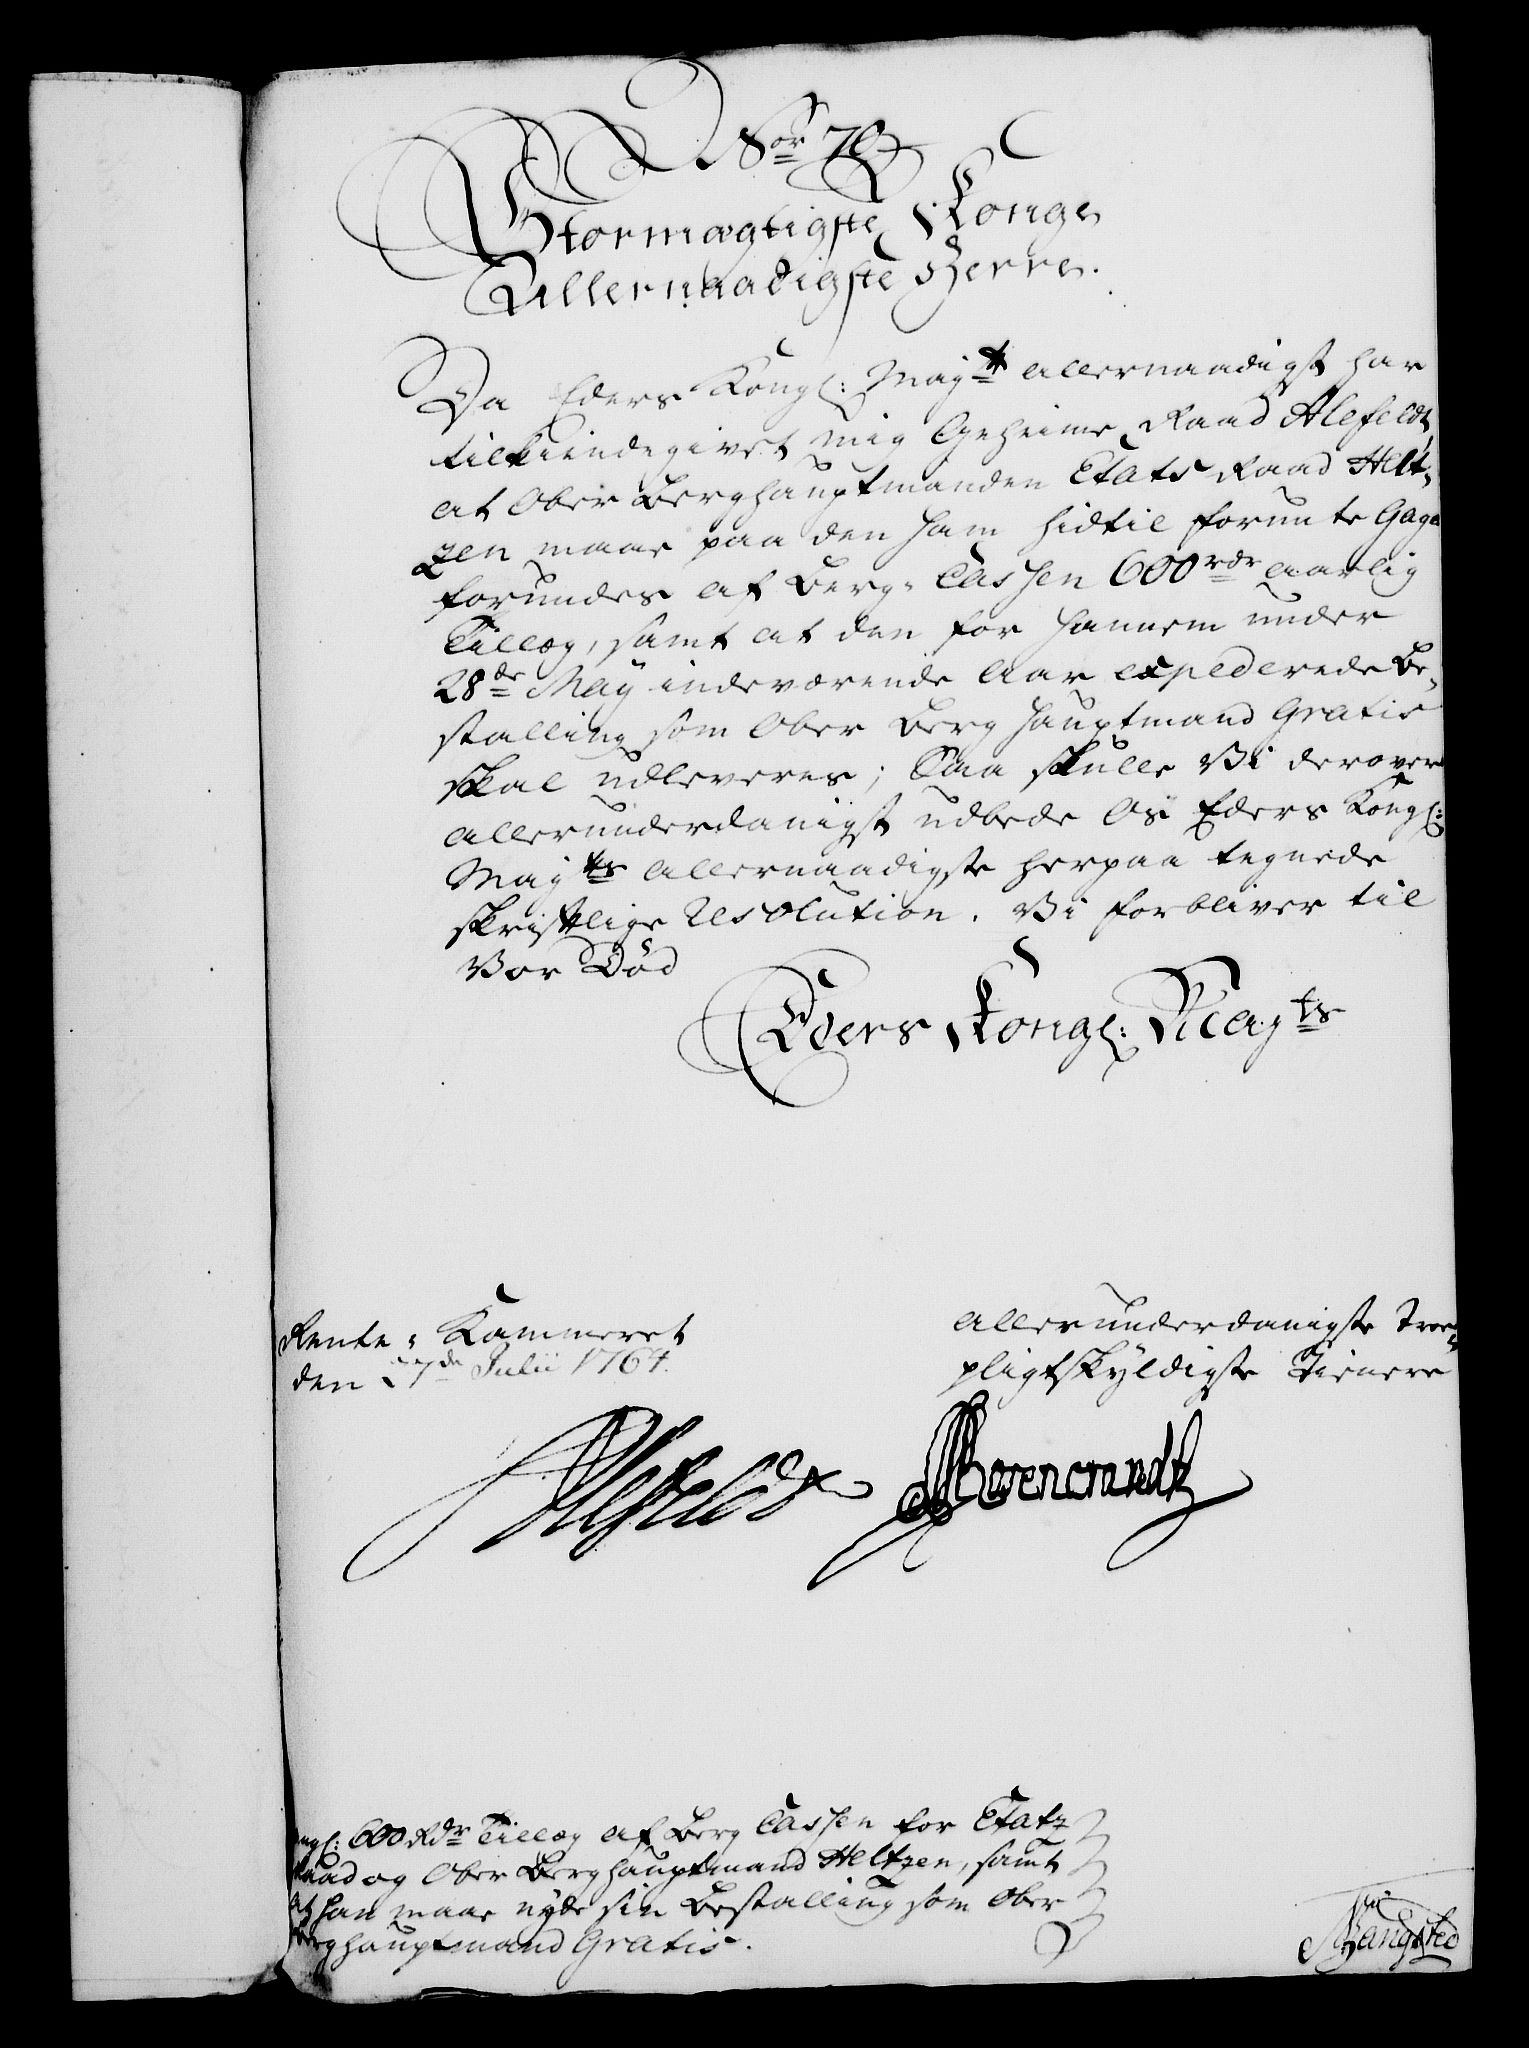 Nor 78
Stormægtigste Konge
Allernaadigste Herre.
Da Eders Kongl: Maytt allernaadigst har
tilkiendegivet mig Geheime Raad Alefeldt,
at Ober Berghauptmanden Etats Raad Helt-
zen maae paa den ham hidtil forunte Gage
forundes af Berg-Cassen 600 rdr aarlig
Tillæg, samt at den for hannem under
28de May indeværende Aar expederede Be-
stalling som Ober Berghauptmand Gratis
skal udleveres; Saa skulle Vi derover
allerunderdanigst udbede Os Eders Kongl:
Mayts allernaadigste herpaa tegnede
skriftlige Resolution. Vi forbliver til
Vor Död
Eders Kongl: Mayts
Rente-Kammeret
den 27de Julii 1764.
allerunderdanigste Troe
pligtskyldigste Tienere
Alefeldt
ngl: 600 Rdr Tillæg af Berg Cassen for Etatz
Raad og Ober Berghauptmand Heltzen, samt
at han maae nyde sin Bestalling som Ober
Berghauptmand Gratis.
Bangsted